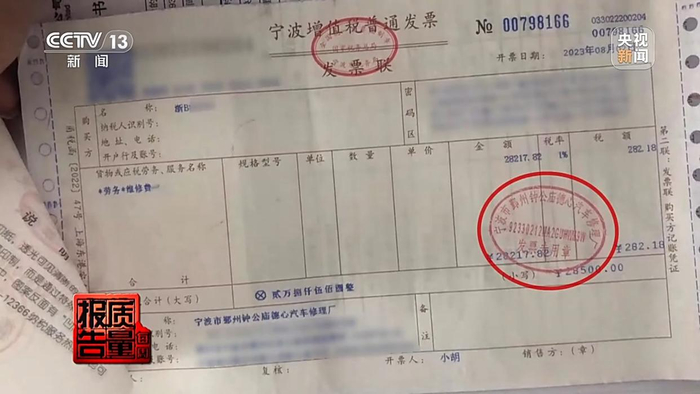 CCTV 13
新闻
央视
新闻
宁波增值税普通发票
发票联
№ 00798166
033022200204
00798166
开票日期: 2023年08月
购买方
名 称: 浙B
纳税人识别号:
地 址、电 话:
开户行及账号:
密码区
货物或应税劳务、服务名称
规格型号
单位
数 量
单 价
金 额
税率
税 额
*劳务*维修费
28217.82
1%
282.18
合 计
¥28217.82
¥282.18
价税合计(大写)
ⓧ 贰万捌仟伍佰圆整
(小写)
¥28500.00
宁波市鄞州钟公庙德心汽车修理厂
发票专用章
名 称:
宁波市鄞州钟公庙德心汽车修理厂
纳税人识别号:
地 址、电 话:
开户行及账号:
备注
复核:
开票人: 小明
销售方:(章)
第二联:发票联 购买方记账凭证
质量
报告